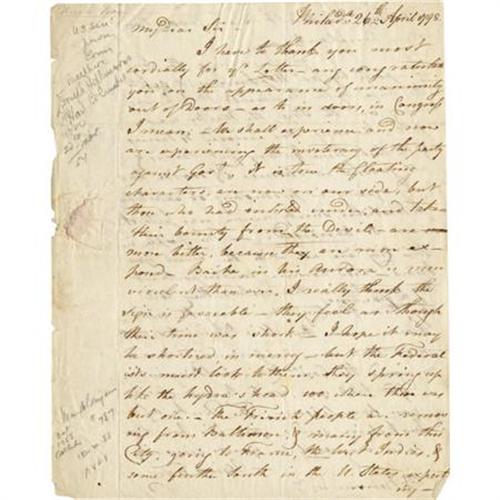 Philada. 26th April 1798.
My Dear Sir
I have to thank you most
cordially for yr. Letter – and congratulate
you on the appearance of unanimity
out of Doors – as to in doors, in Congress
I mean – We shall experience and now
are experiencing the inveteracy of the party
against Govt. It is true the floating
characters are now on our side, but
those who had enlisted under, and take
their bounty from the Devil – are
more bitter, because they are more ex-
posed – Bache, in his Aurora is more
violent than ever. I really think the
Sign is favorable – they feel as though
their time was short – I hope it may
be shortened in mercy – but the Federal
ists must look to them; they spring up
like the hydra's head 100, where there was
but one – the French people are remov
ing from Baltimore & many from this
City, going to France, the West Indies, &
some further South in the U States, expect
ing –